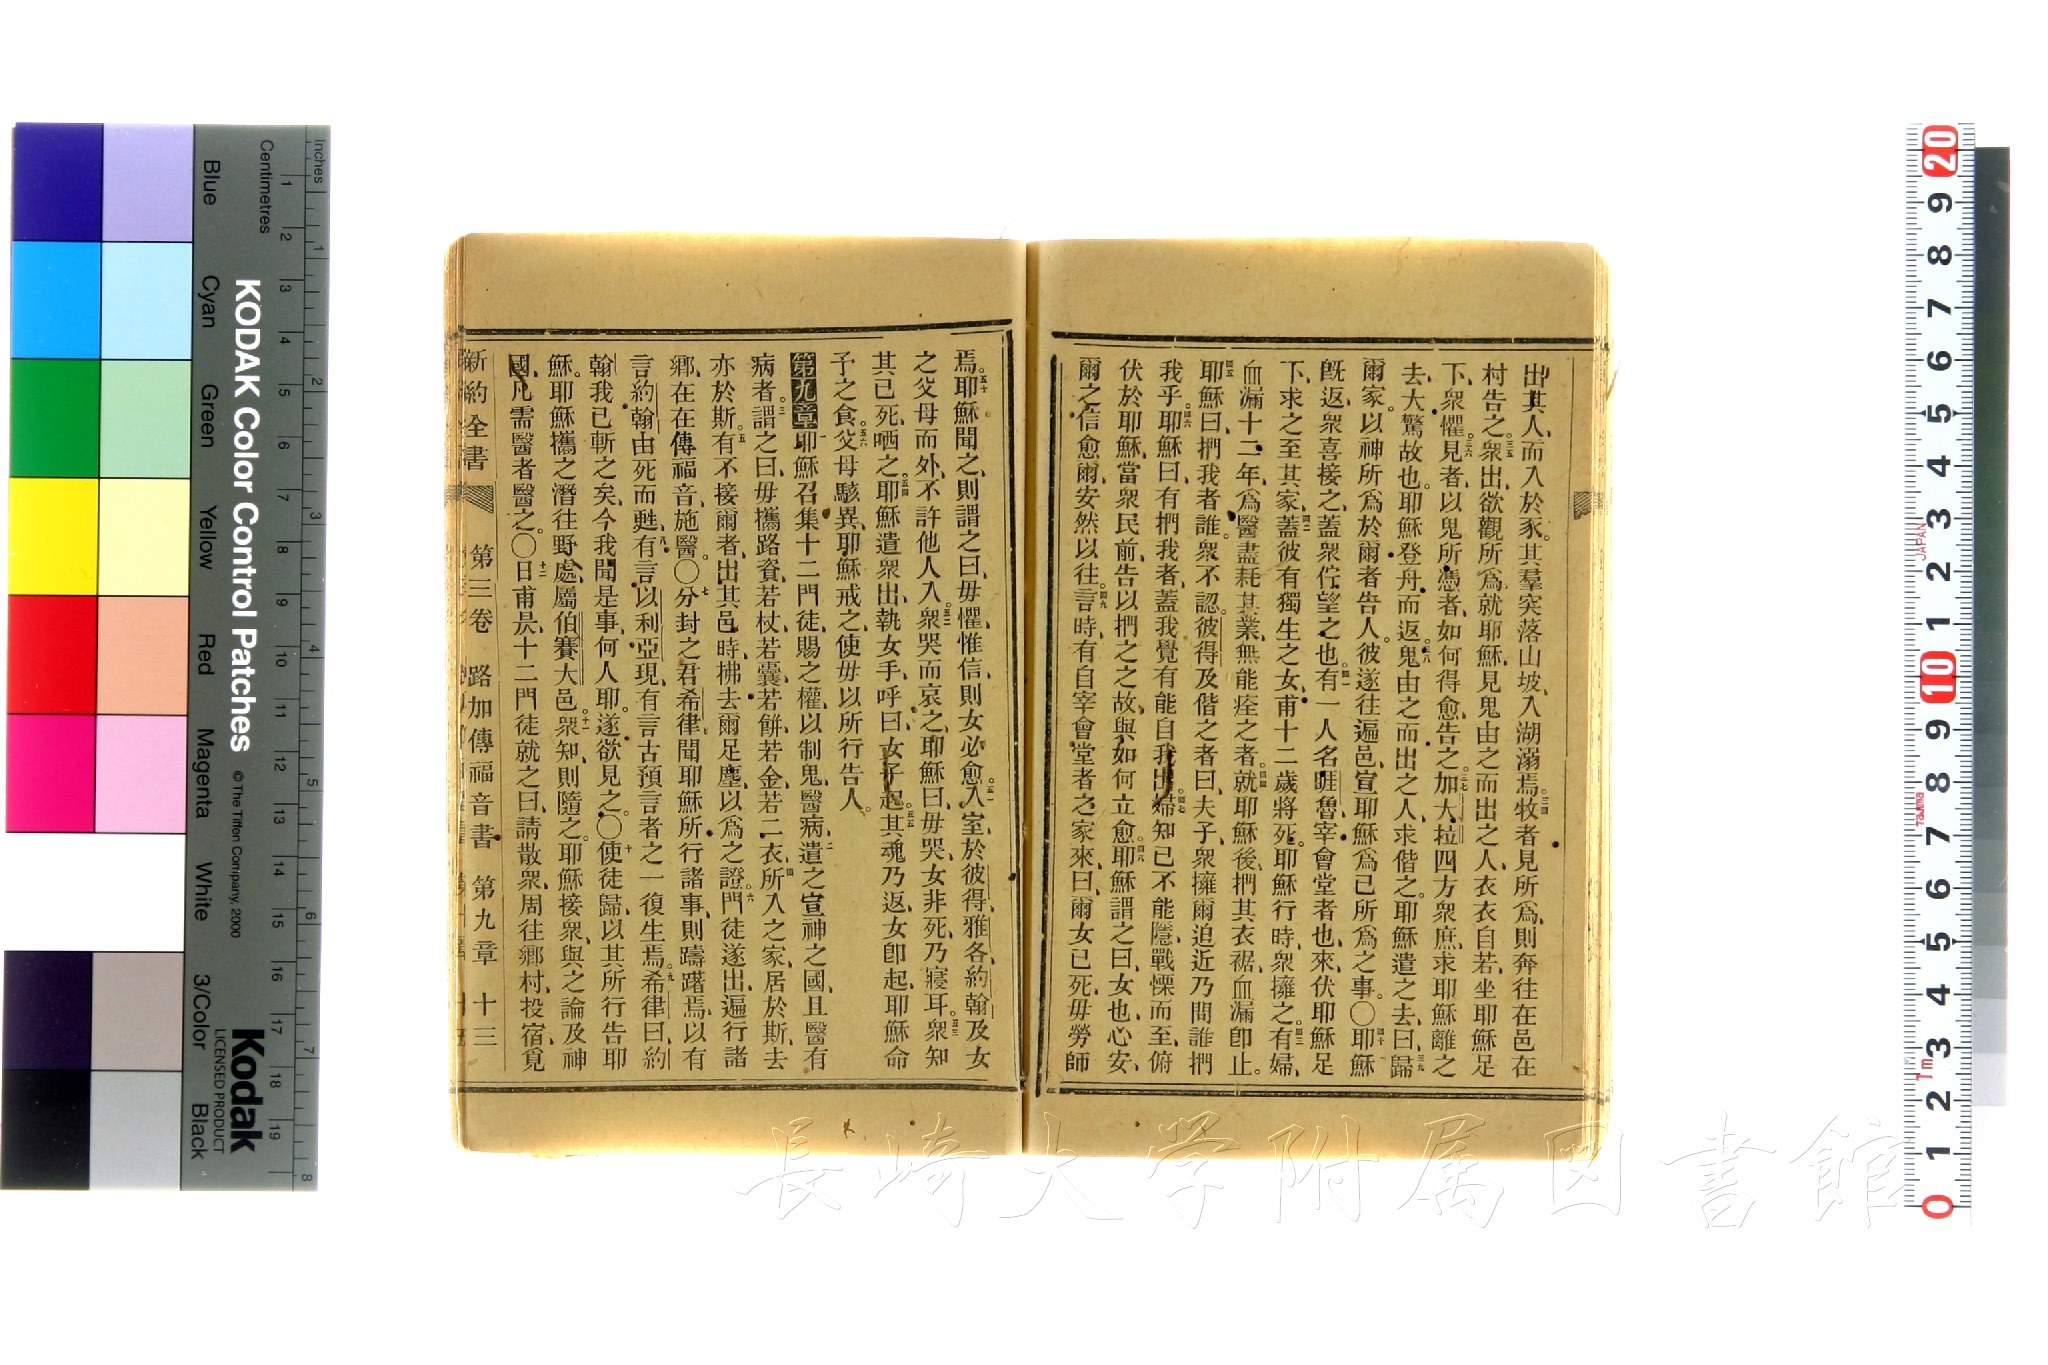 出其人、而入於豕。其羣突落山坡、入湖溺焉。三四牧者見所爲、則奔往在邑在
村告之。三五衆出、欲觀所爲、就耶穌、見鬼由之而出之人、衣衣自若、坐耶穌足
下、衆懼。三六見者、以鬼所憑者、如何得愈告之。三七加大拉四方衆庶、求耶穌離之
去、大驚故也。耶穌登舟而返。三八鬼由之而出之人、求偕之。耶穌遣之去曰、三九歸
爾家。以神所爲於爾者告人。彼遂往遍邑、宣耶穌爲己所爲之事。〇四十耶穌
旣返、衆喜接之、蓋衆佇望之也。四一有一人名睚魯、宰會堂者也、來伏耶穌足
下、求之至其家、四二蓋彼有獨生之女、甫十二歲將死。耶穌行時、衆擁之。四三有婦、
血漏十二年、爲醫盡耗其業、無能痊之者。四四就耶穌後、捫其衣裾、血漏卽止。
四五耶穌曰、捫我者誰。衆不認。彼得及偕之者曰、夫子、衆擁爾迫近、乃問誰捫
我乎。四六耶穌曰、有捫我者、蓋我覺有能自我出。四七婦知己不能隱、戰慄而至、俯
伏於耶穌、當衆民前、告以捫之之故、與如何立愈。四八耶穌謂之曰、女也、心安、
爾之信愈爾、安然以往。四九言時、有自宰會堂者之家來、曰、爾女已死、毋勞師
焉。五十耶穌聞之、則謂之曰、毋懼、惟信、則女必愈。五一入室、於彼得、雅各、約翰、及女
之父母而外、不許他人入。五二衆哭而哀之、耶穌曰、毋哭、女非死、乃寢耳。五三衆知
其已死、哂之。五四耶穌遣衆出、執女手、呼曰、女子起。五五其魂乃返、女卽起、耶穌命
予之食。五六父母駭異、耶穌戒之、使毋以所行告人。
第九章 一耶穌召集十二門徒、賜之權、以制鬼醫病、二遣之宣神之國、且醫有
病者。三謂之曰、毋攜路資、若杖、若囊、若餅、若金、若二衣、四所入之家、居於斯、去
亦於斯。五有不接爾者、出其邑時、拂去爾足塵、以爲之證。六門徒遂出、遍行諸
鄉、在在傳福音施醫。〇七分封之君希律、聞耶穌所行諸事、則躊躇焉、以有
言約翰由死而甦、八有言以利亞現、有言古預言者之一復生焉。九希律曰、約
翰我已斬之矣、今我聞是事、何人耶。遂欲見之。〇十使徒歸、以其所行告耶
穌。耶穌攜之潛往野處、屬伯賽大邑。十一衆知、則隨之。耶穌接衆、與之論及神
國、凡需醫者醫之。〇十二日甫昃、十二門徒就之曰、請散衆、周往鄉村、投宿、覓
新約全書 第三卷 路加傳福音書 第九章 十三
KODAK Color Control Patches
© The Tiffen Company, 2000
Kodak
LICENSED PRODUCT
Inches
Centimetres
Blue Cyan Green Yellow Red Magenta White 3/Color Black
1 2 3 4 5 6 7 8 9 10 11 12 13 14 15 16 17 18 19
1 2 3 4 5 6 7 8
20 9 8 7 6 5 4 3 2 1 10 9 8 7 6 5 4 3 2 1 0
JAPAN
Tajima
1m
長崎大学附属図書館